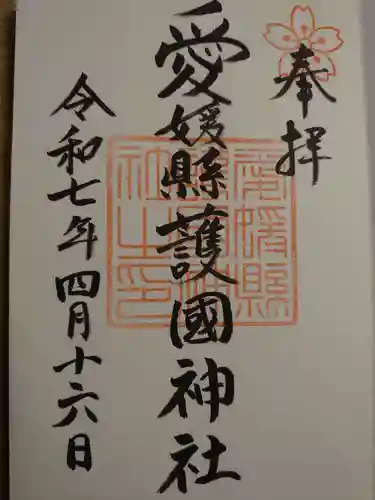 奉拝
愛媛縣護國神社
令和七年四月十六日
愛媛縣護國神社之印